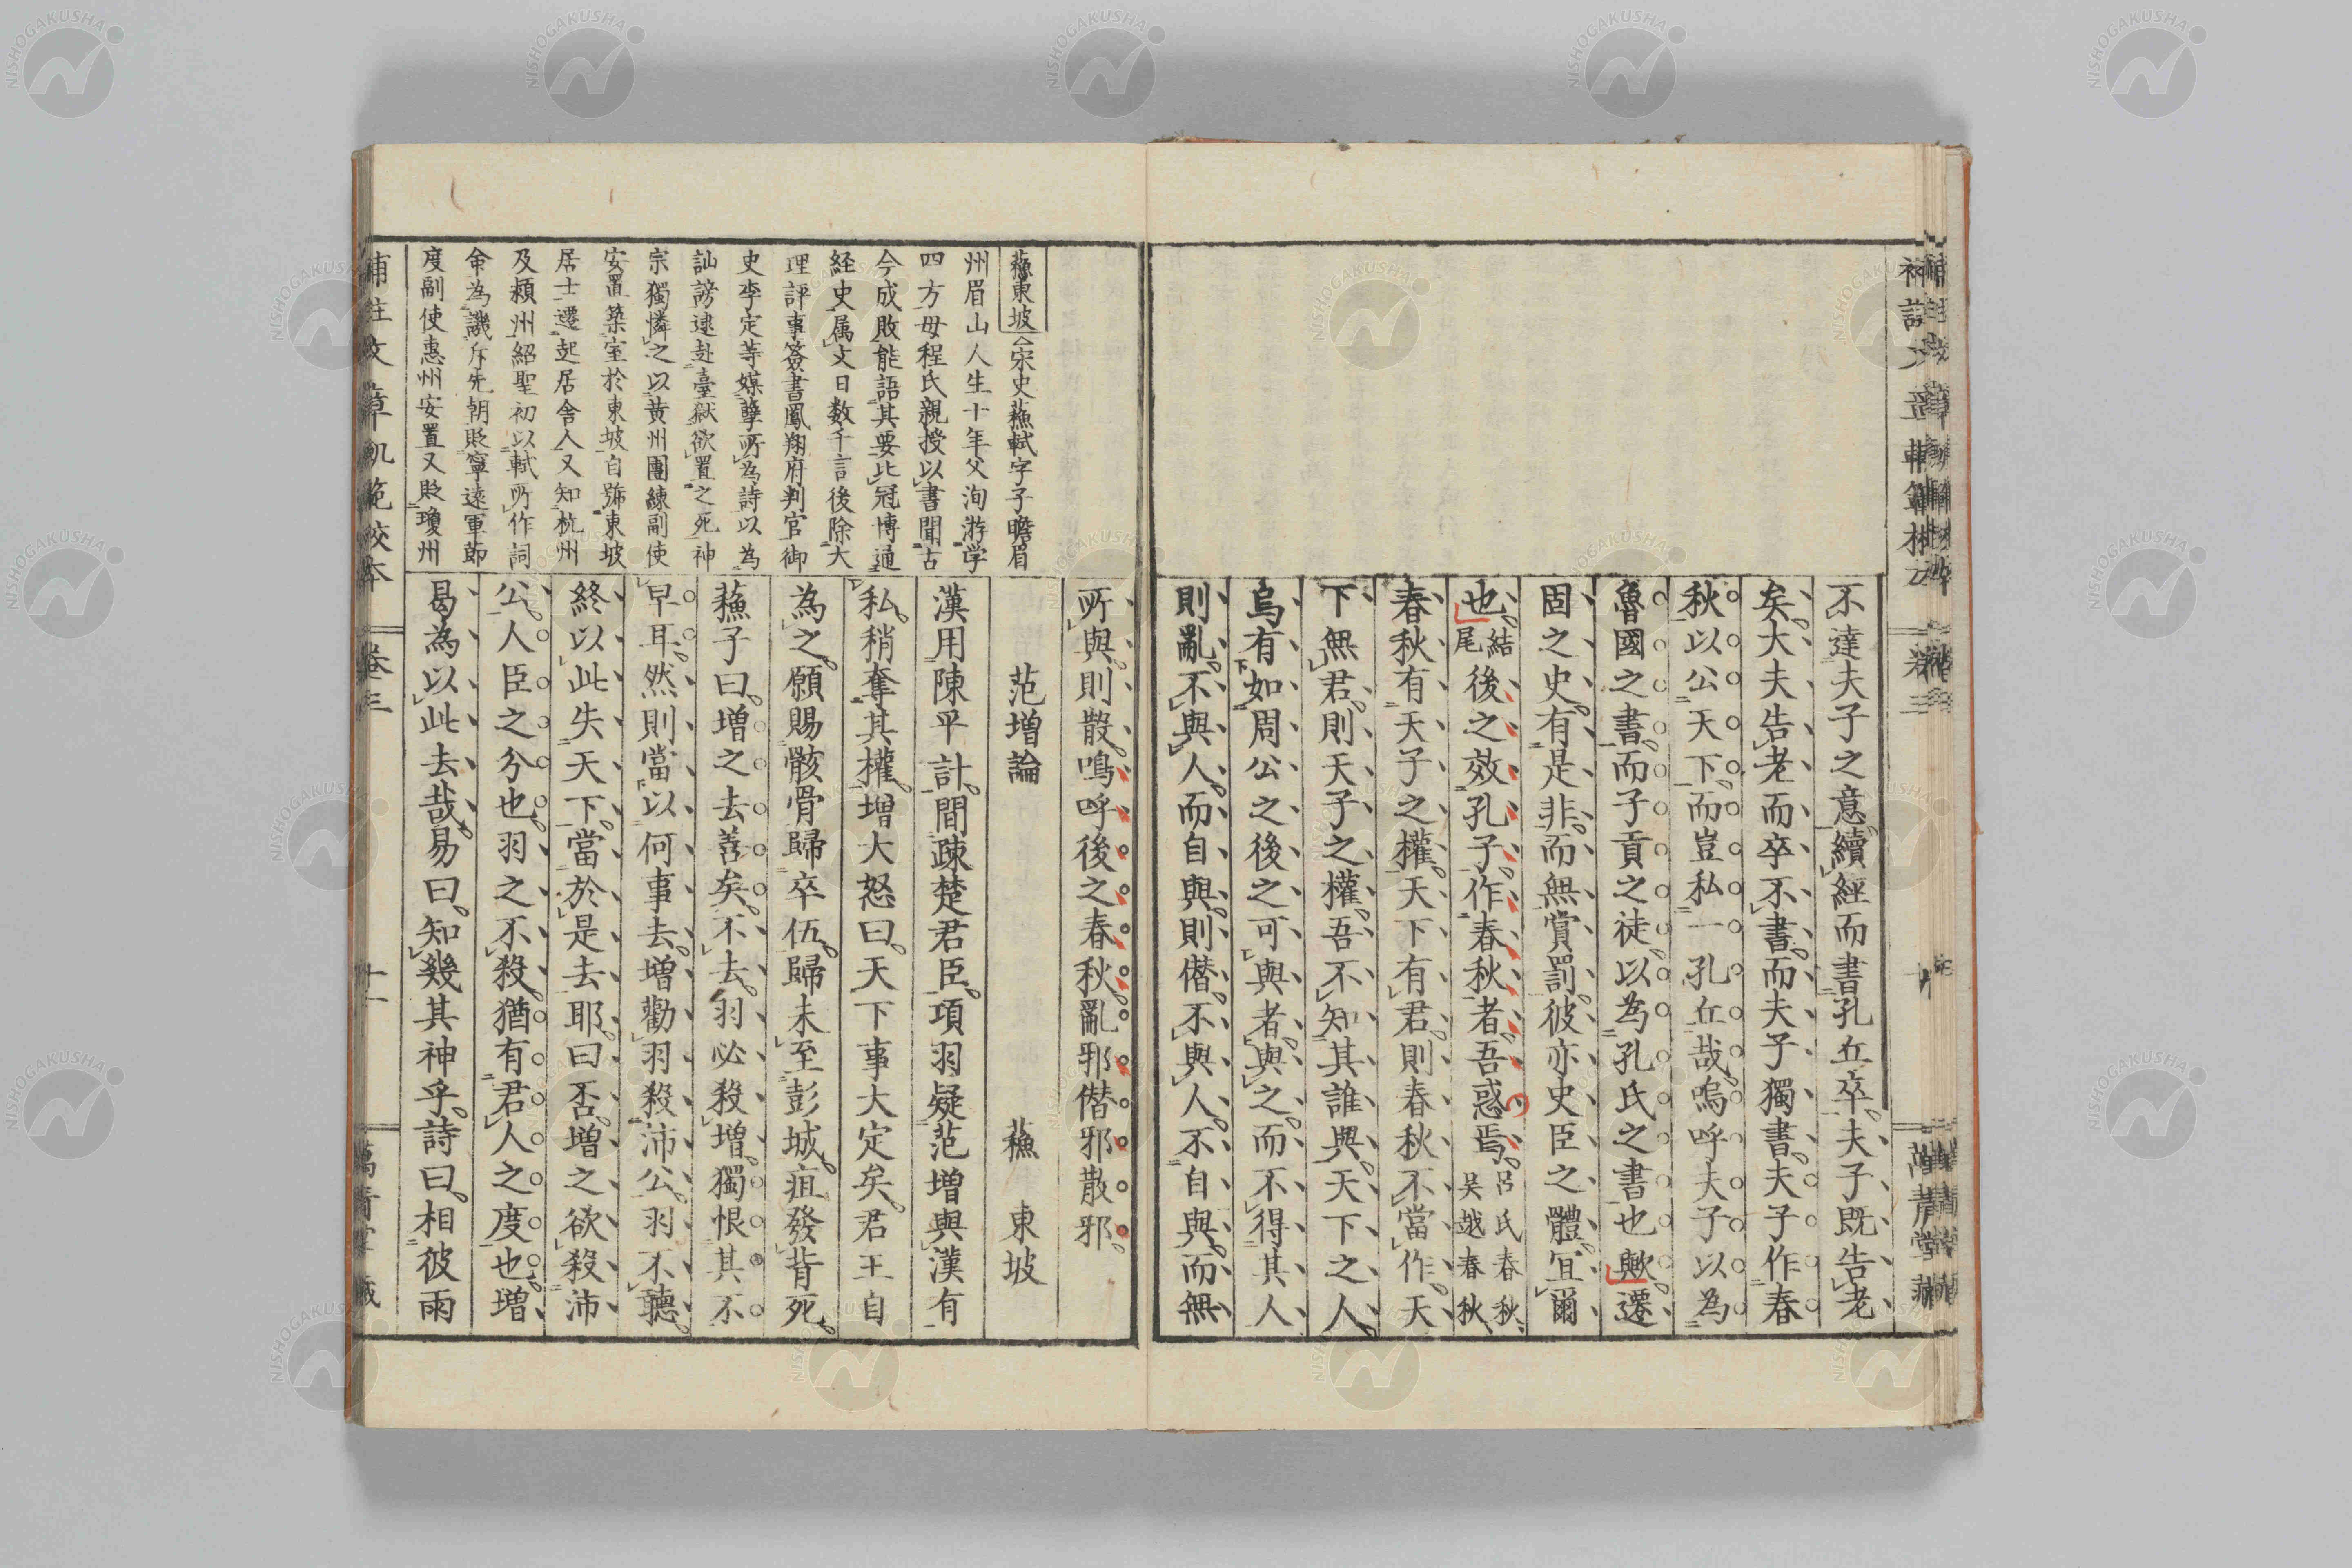 不達夫子之意續經而書孔丘卒。夫子既告老
矣。大夫告老而卒不書。而夫子獨書。夫子作春
秋以公天下而豈私一孔丘哉嗚呼夫子以為
魯國之書而子貢之徒以為孔氏之書也歟遷
固之史有是非而無賞罰彼亦史臣之體宜爾
也結尾後之效孔子作春秋者吾惑焉呂氏春秋吳越春秋
春秋有天子之權天下有君則春秋不當作天
下無君則天子之權吾不知其誰與天下之人
烏有如周公之後之可與者與之而不得其人
則亂不與人而自與則僭不與人不自與而無
所與則散嗚呼後之春秋亂邪僭邪散邪
范增論 蘓東坡
漢用陳平計間疎楚君臣項羽疑范增與漢有
私稍奪其權增大怒曰天下事大定矣君王自
為之願賜骸骨歸卒伍歸未至彭城疽發背死
蘓子曰增之去善矣不去羽必殺增獨恨其不
早耳然則當以何事去增勸羽殺沛公羽不聽
終以此失天下當於是去耶曰否增之欲殺沛
公人臣之分也羽之不殺猶有君人之度也增
曷為以此去哉易曰知幾其神乎詩曰相彼雨
蘓東坡 宋史蘓軾字子瞻眉
州眉山人生十年父洵游学
四方母程氏親授以書聞古
今成敗能語其要比冠博通
経史属文日数千言後除大
理評事簽書鳳翔府判官御
史李定等媒孽所為詩以為
訕謗逮赴臺獄欲置之死神
宗獨憐之以黄州團練副使
安置築室於東坡自號東坡
居士遷起居舍人又知杭州
及潁州紹聖初以軾所作詞
命為譏斥先朝貶寧遠軍節
度副使惠州安置又貶瓊州
補註文章軌範校本 卷三 十一
NISHOGAKUSHA